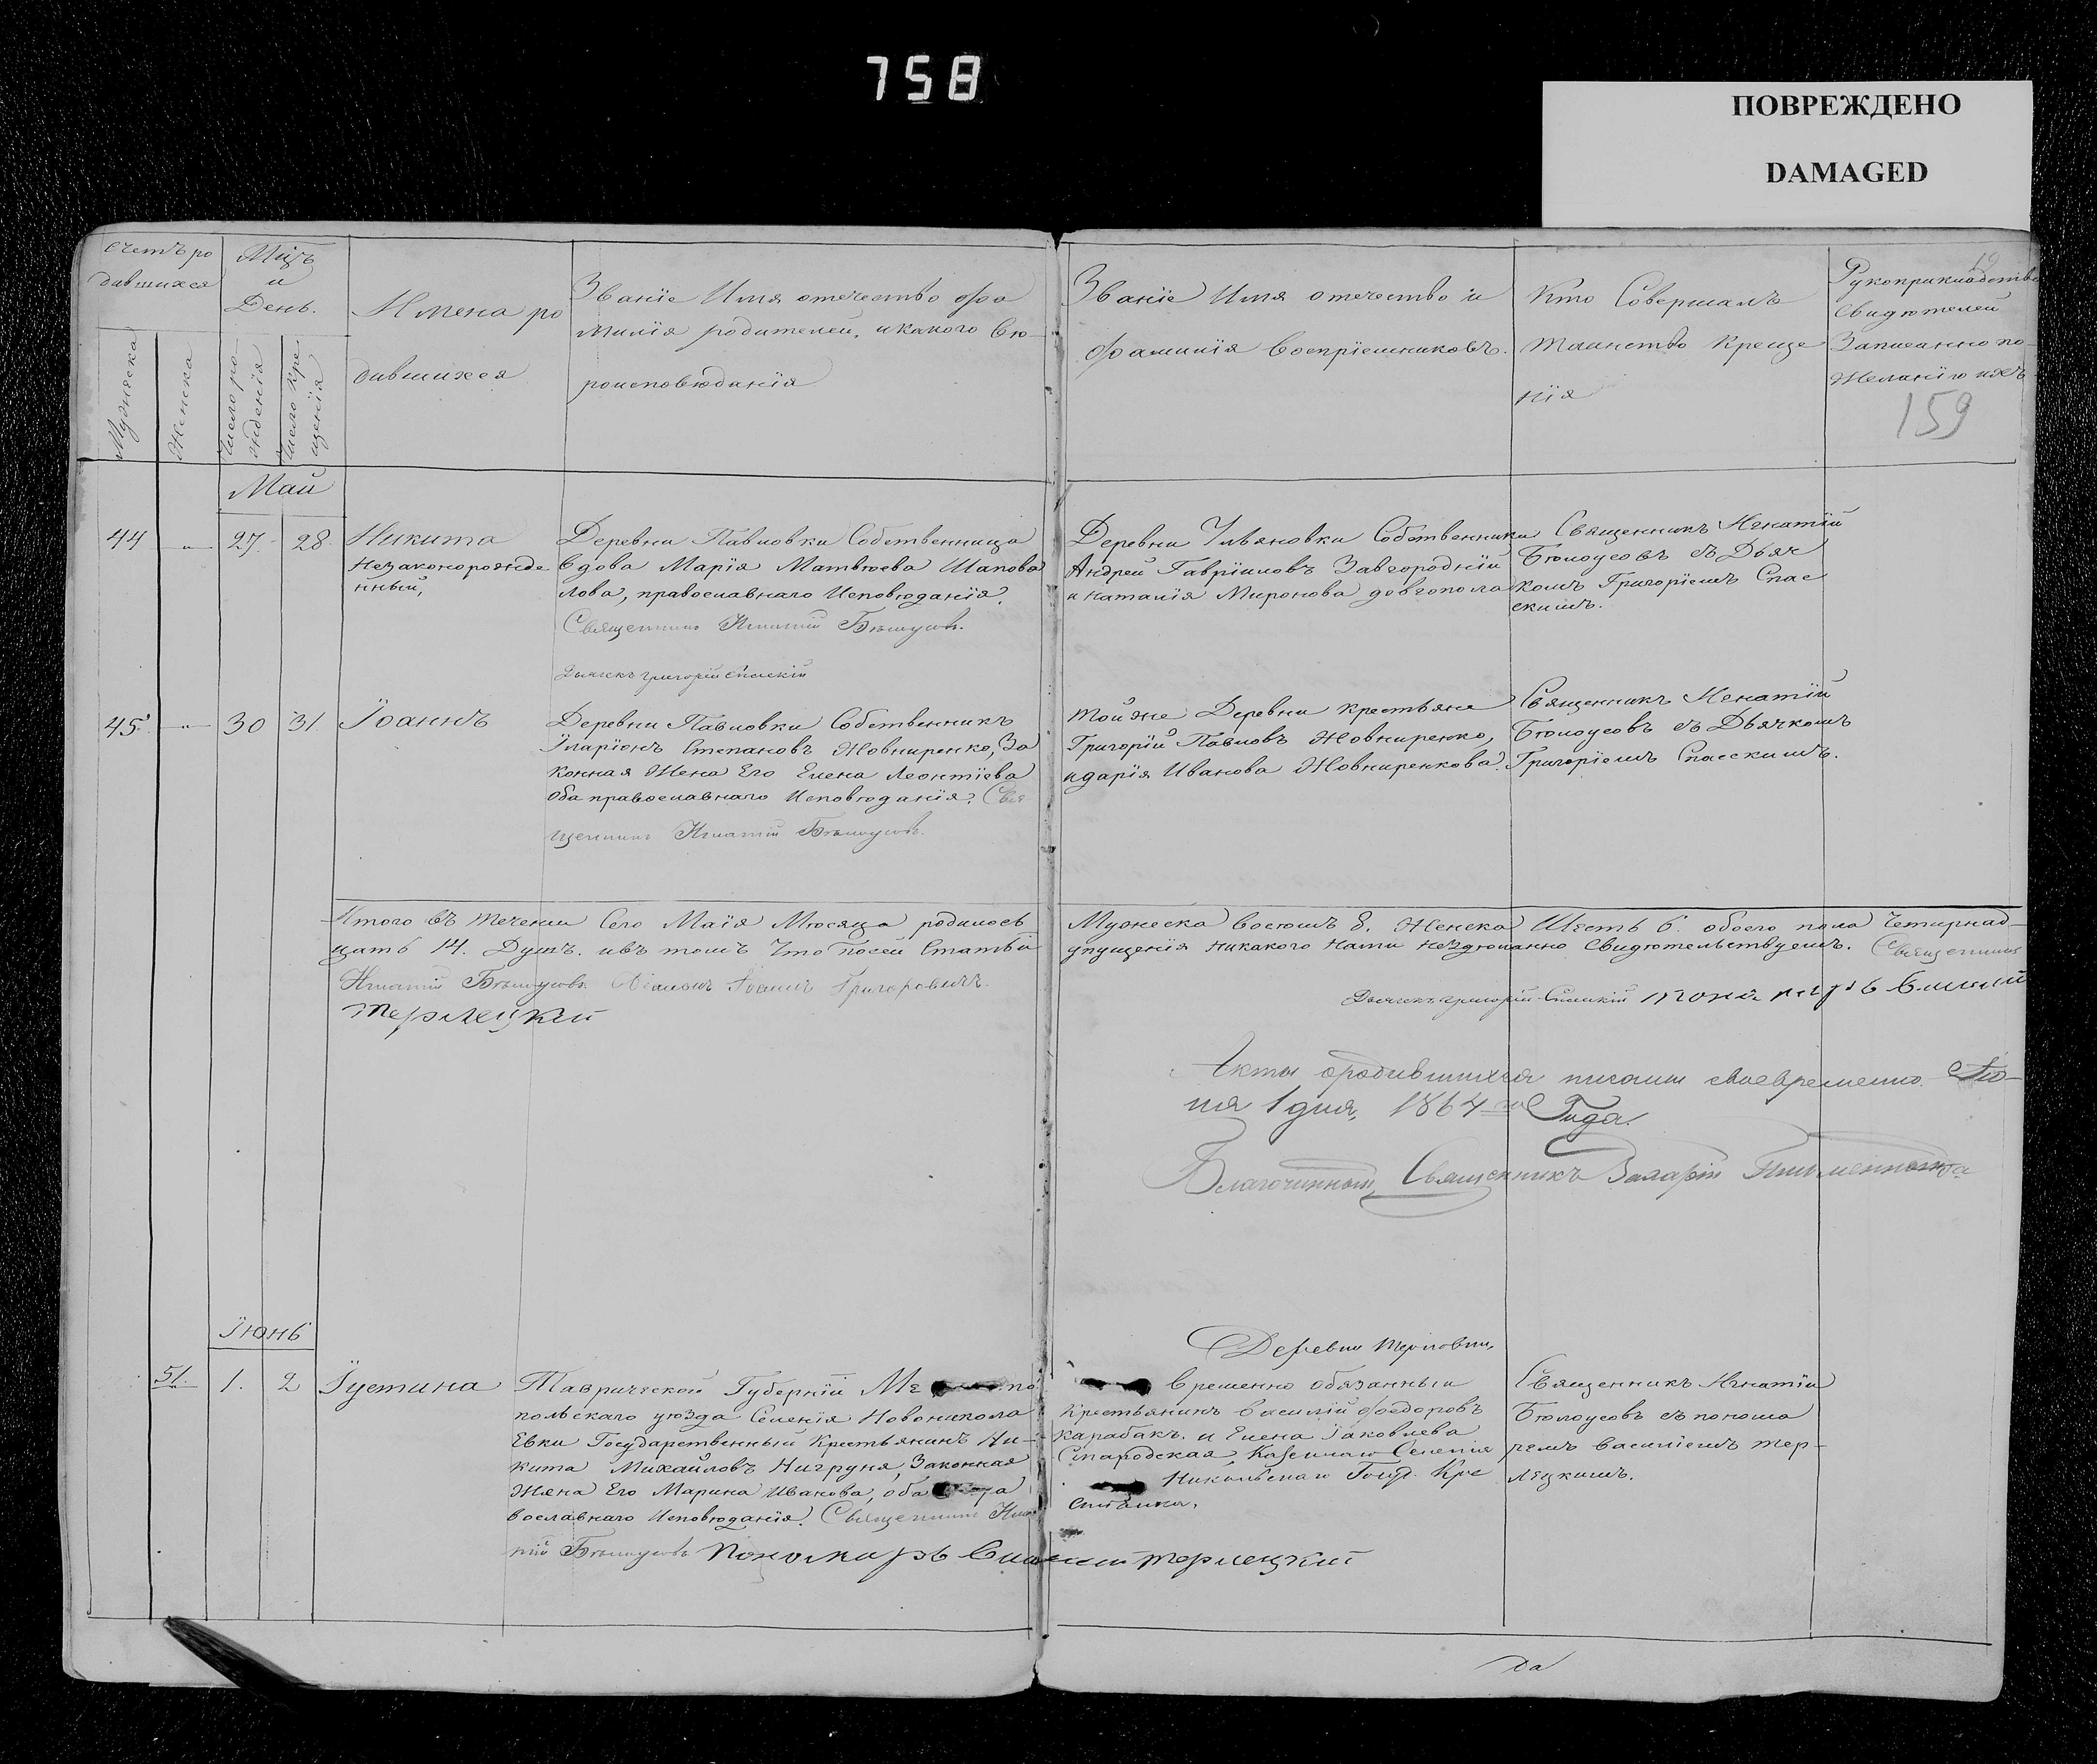 758
ПОВРЕЖДЕНО
DAMAGED
Счетъ ро
дившихся
Мужеска
Женска
Мцъ
и
День.
Число ро-
жденія
Число кре-
щенія
Имена ро
дившихся
Званіе Имя отечество фра
милія родителей, и какого вѣ-
роисповѣданія
Званіе Имя отечество и
фрамилія воспріемниковъ.
Кто Совершалъ
таинство Креще
нія
19
Рукоприкладство
Свидѣтелей
Записанно по-
желанію ихъ
159
Май
44 " 27. 28.
Никита
Незаконорожде
нный,
Деревни Павловки Собственница
вдова Марія Матвѣева Шапова
лова, православнаго Исповѣданія.
Священникъ Игнатій Бѣлоусовъ.
Дьячекъ Григорій Спасскій
Деревни Ульяновки Собственники
Андрей Гавріиловъ Завгородній
и Наталія Миронова довгопола
Священникъ Игнатій
Бѣлоусовъ съ Дьяч
комъ Григоріемъ Спас
скимъ.
45. " 30 31.
Іоаннъ
Деревни Павловки Собственникъ
Иларіонъ Степановъ Жовниренко, За
конная Жена Его Елена Леонтіева
оба православнаго Исповѣданія. Свя
щенникъ Игнатій Бѣлоусовъ.
тойже Деревни крестьяне
Григорій Павловъ Жовниренко,
и дарія Иванова Жовниренкова.
Священникъ Игнатій
Бѣлоусовъ съ Дьячкомъ
Григоріемъ Спасскимъ.
Итого въ течении Сего Маія Мѣсяца родилось Мужеска восемъ 8. Женска Шесть 6. обоего пола Четирнад-
цать 14. Душъ. ивъ томъ Что Посей Статьи упущенія никакого нами нездѣланно Свидѣтельствуемъ. Священникъ
Игнатій Бѣлоусовъ Діаконъ Іоаннъ Григоровичъ. Дьячекъ Григорій Спасскій пономарь Василий
терлецкий
Акты ородившихся писаны своевременно. Ію-
ня 1 дня, 1864 го Года.
Благочинный, Священникъ Захарій
Іюнь
51. 1. 2
Іустина
Таврической Губерніи Ме по
польскаго уѣзда Селенія Новоникола
евки Государственный Крестьянинъ Ни-
кита Михайловъ Нигруня, Законная
Жена Его Марина Иванова, оба ра
вославнаго Исповѣданія. Священникъ Игна
тій Бѣлоусовъ Пономарь Василий терлецкий
Деревни Терповки,
временно обязанный
Крестьянинъ Василій Федоровъ
Карабакъ. и Елена Іаковлева
Стародская, Казеннаго Селенія
Никольскаго Госуд. Кре
стьянка.
Священникъ Игнатій
Бѣлоусовъ съ понома
ремъ Василіемъ тер-
лецкимъ.
да